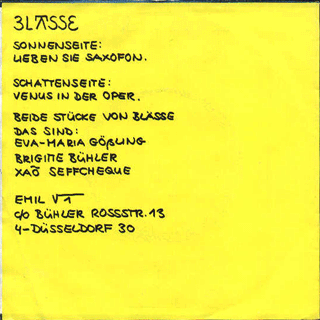 BLÄSSE
SONNENSEITE:
LIEBEN SIE SAXOFON.
SCHATTENSEITE:
VENUS IN DER OPER.
BEIDE STÜCKE VON BLÄSSE
DAS SIND:
EVA-MARIA GÖßLING
BRIGITTE BÜHLER
XAÕ SEFFCHEQUE
EMIL
C/O BÜHLER ROSSSTR. 13
4-DÜSSELDORF 30